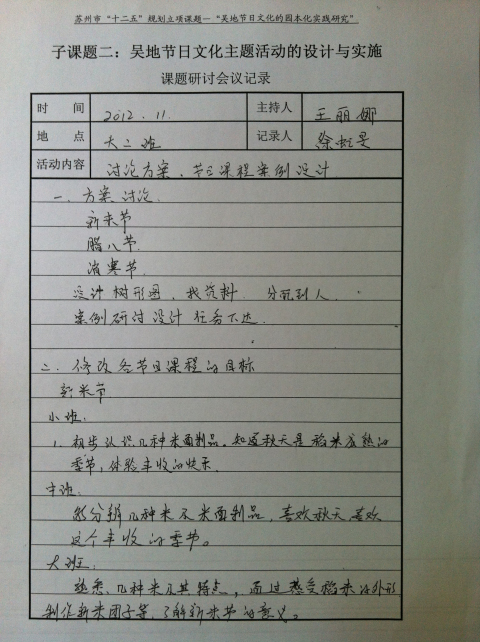 苏州市“十二五”规划立项课题—“吴地节日文化的园本化实践研究”
子课题二：吴地节日文化主题活动的设计与实施
课题研讨会议记录
时 间 2012.11. 主持人 王丽娜
地 点 大二班 记录人 徐虹旻
活动内容 讨论方案、节日课程案例设计
一. 方案讨论.
新米节
腊八节.
消寒节.
设计树形图，找资料. 分配到人.
案例研讨设计 任务下达.
二. 修改各节日课程的目标
新米节
小班:
1. 初步认识几种米面制品。知道秋天是稻米成熟的
季节，体验丰收的快乐.
中班
能分辨几种米及米面制品，喜欢秋天，喜欢
这个丰收的季节。
大班:
熟悉几种米及其特点，通过感受稻米的外形
制作新米团子等，了解新米节的意义。